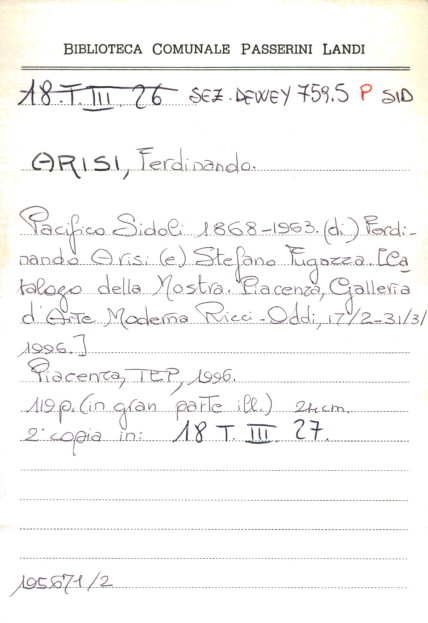 BIBLIOTECA COMUNALE PASSERINI LANDI
18.T.III.26 SEZ. DEWEY 759.5 P SID
ARISI, Ferdinando.
Pacifico Sidoli 1868-1963. (di) Ferdi-
nando Arisi (e) Stefano Fugazza. [Ca
talogo della Mostra. Piacenza, Galleria
d'Arte Moderna Ricci-Oddi, 17/2-31/3/
1996.]
Piacenza, TEP, 1996.
119 p. (in gran parte ill.) 24 cm.
2° copia in: 18 T. III. 27.
195671/2